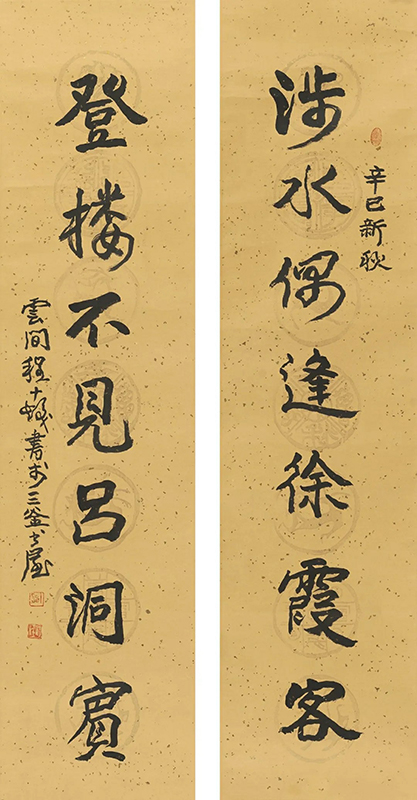 辛巳新秋
涉水偶逢徐霞客
登楼不見呂洞賓
雲间程十髮書於三釜書屋